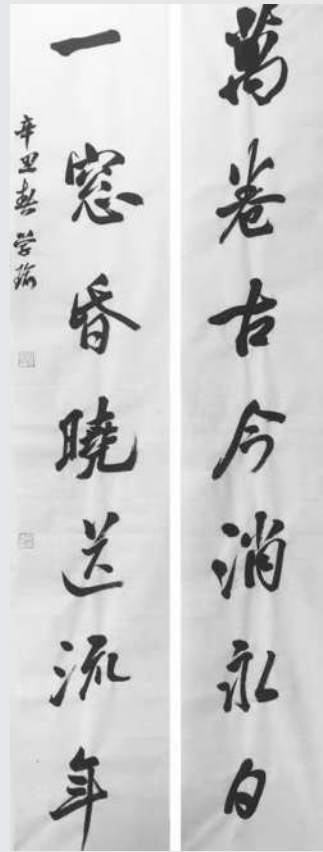 萬卷古今消永日
一窓昏曉送流年
辛丑春 学瑜